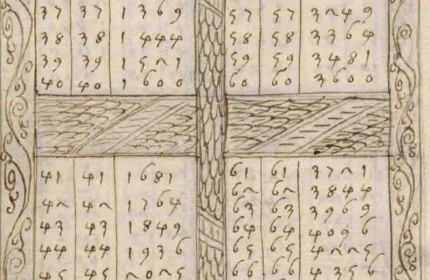 37 37 1369
38 38 1444
39 39 1521
40 40 1600
57 57 3249
58 58 3364
59 59 3481
60 60 3600
41 41 1681
42 42 1764
43 43 1849
44 44 1936
45 45 2025
61 61 3721
62 62 3844
63 63 3969
64 64 4096
65 65 4225